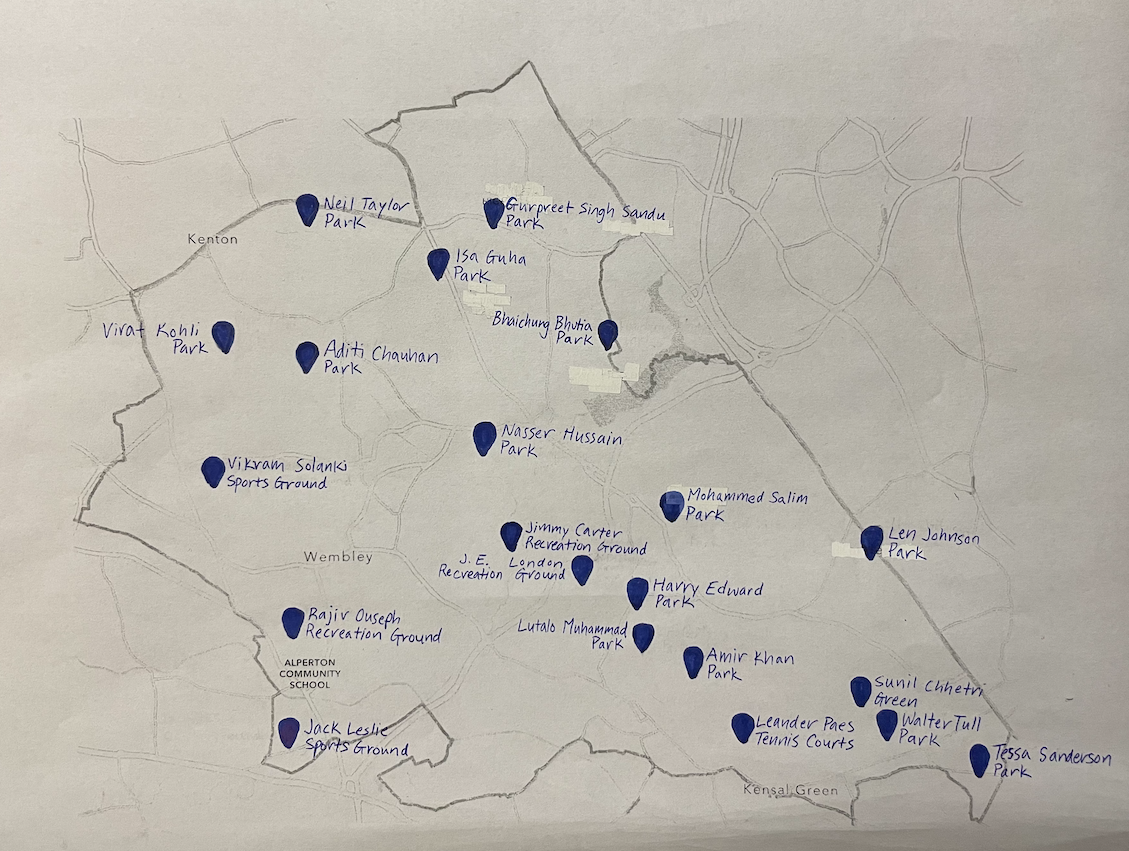 Neil Taylor
Park
Gurpreet Singh Sandu
Park
Kenton
Isa Guha
Park
Virat Kohli
Park
Bhaichung Bhutia
Park
Aditi Chauhan
Park
Nasser Hussain
Park
Vikram Solanki
Sports Ground
Mohammed Salim
Park
Jimmy Carter
Recreation Ground
Len Johnson
Park
Wembley
J.E. London
Recreation Ground
Harry Edward
Park
Rajiv Ouseph
Recreation Ground
Lutalo Muhammad
Park
ALPERTON
COMMUNITY
SCHOOL
Amir Khan
Park
Sunil Chhetri
Green
Jack Leslie
Sports Ground
Leander Paes
Tennis Courts
Walter Tull
Park
Tessa Sanderson
Park
Kensal Green